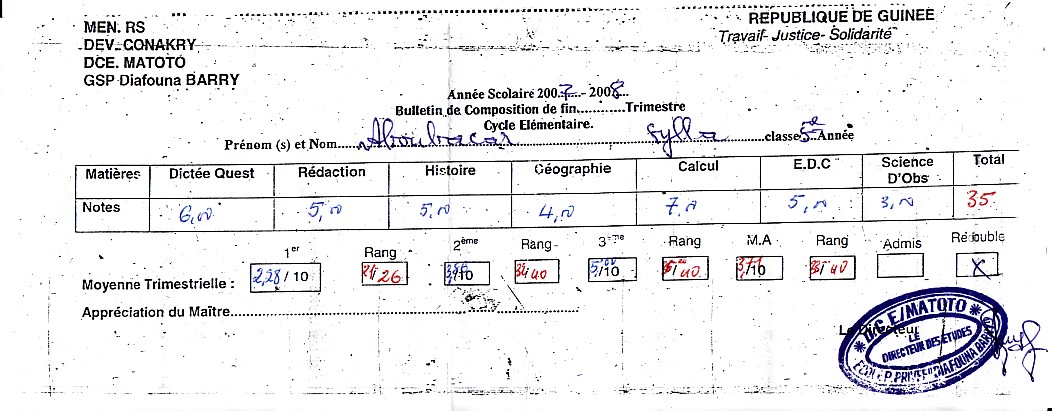 MEN. RS
DEV. CONAKRY
DCE. MATOTO
GSP Diafouna BARRY
REPUBLIQUE DE GUINEE
Travail- Justice- Solidarité
Année Scolaire 2007 - 2008
Bulletin de Composition de fin............Trimestre
Cycle Elémentaire.
Prénom (s) et Nom.....Aboubacar Sylla classe 5e Année
Matières Dictée Quest Rédaction Histoire Géographie Calcul E.D.C Science D'Obs Total
Notes 6,00 5,00 5,00 4,00 7,00 5,00 3,00 35
1er Rang 2ème Rang 3ème Rang M.A Rang Admis Redouble
Moyenne Trimestrielle : 2,28/10 /26 /10 /40 5,00/10 /40 /10 /40 X
Appréciation du Maître
Le Directeur
D.C.E/MATOTO
LE
DIRECTEUR DES ETUDES
DIAFOUNA BARRY